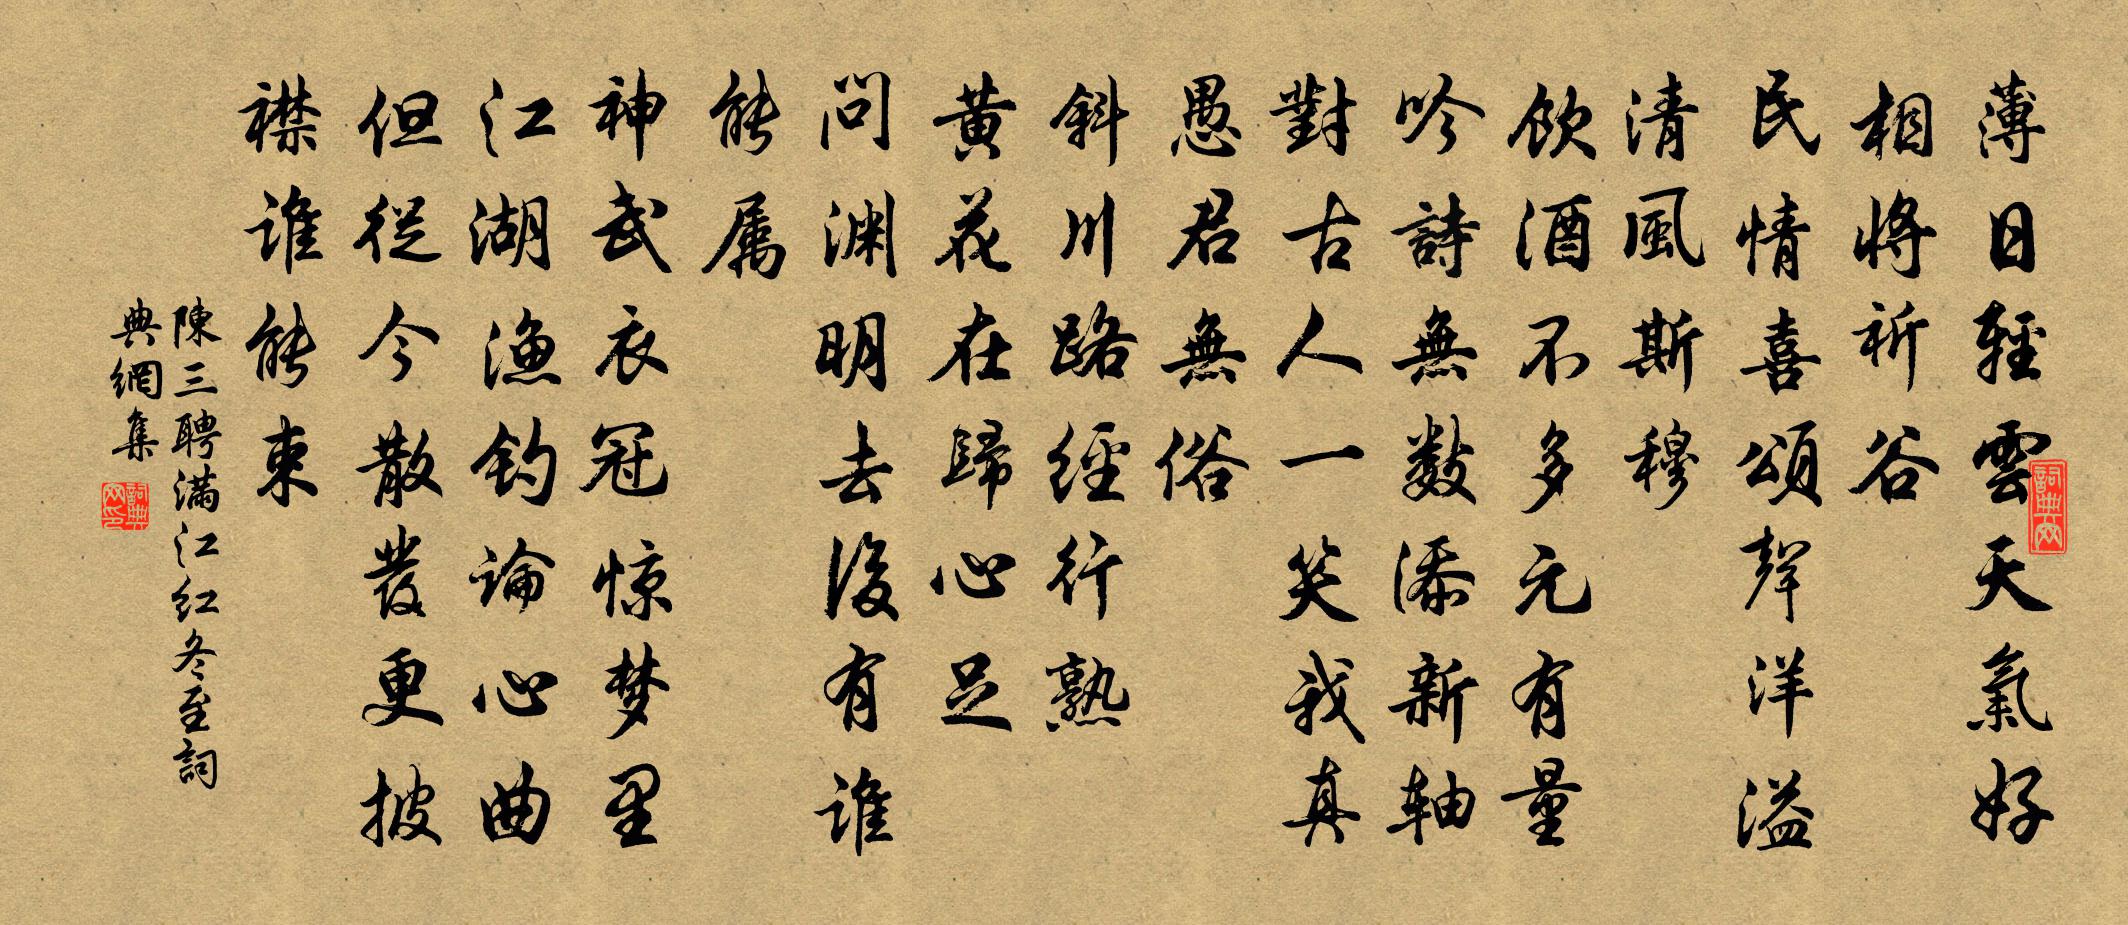 薄日輕雲天氣好
相將祈谷
民情喜頌聲洋溢
清風斯穆
飲酒不多元有量
吟詩無數添新軸
對古人一笑我真
愚君無俗
斜川路經行熟
黃花在歸心足
問渊明去後有谁
能属
神武衣冠惊梦里
江湖漁钓論心曲
但從今散發更披
襟谁能束
陳三聘满江红冬至詞
典網集
詞典网
詞典网印